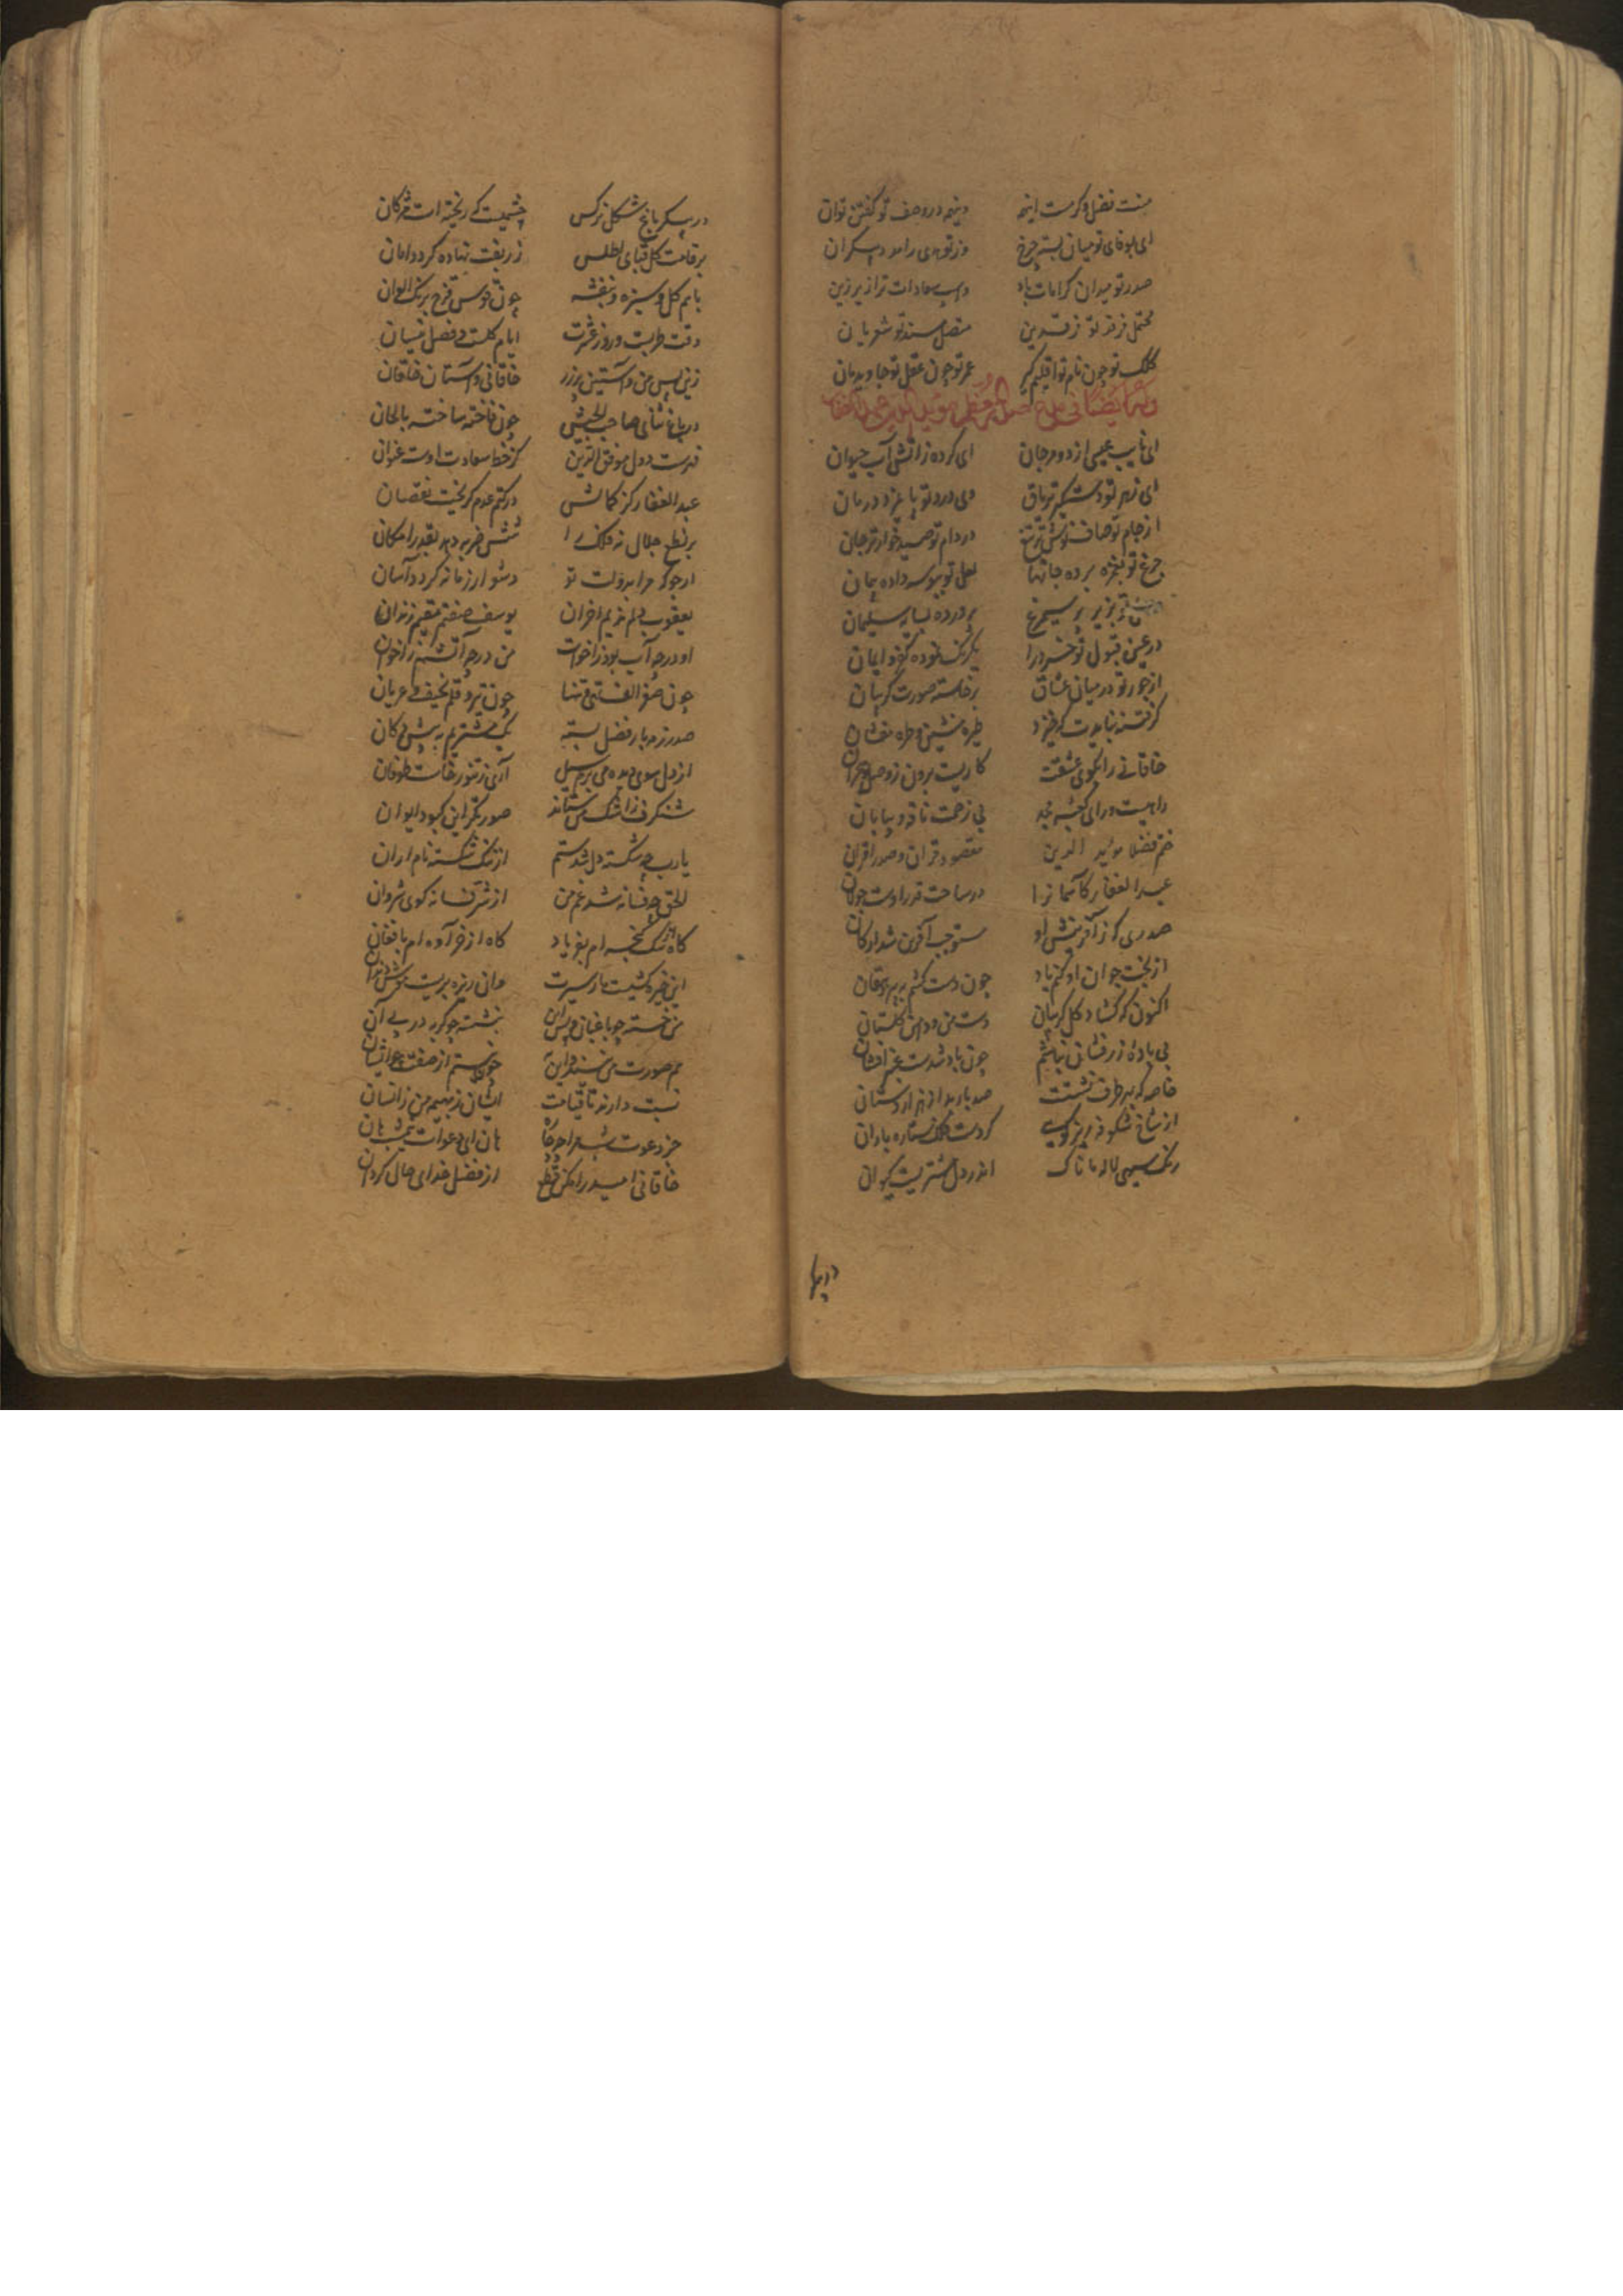 منت فضل و کرمت اینهمه دینهم در وصف تو گفتن توان
ای بوفای تو میان بسته چرخ وز تو هدی را مدد بیکران
صدر تو میدان کرامات باد واسب سعادات ترا زیر زین
کلک تو چون نام تو اقلیم گیر عمر تو چون عقل تو جاودان
وله ایضا فی مدح عبدالغفار
ای نایب عیسی از دو مرجان ای کرده ز آتش آب حیوان
ای زهر تو دستگیر تریاق وی درد تو پایمزد درمان
از جام تو صاف نوش تر تیغ در دام تو صید خوارتر جان
چرخ تو بغمزه برده جانها لعل تو ببوسه داده پیمان
پرورده بسایه سلیمان
در عین قبول تو خرد را یکرنگ نموده کفر و ایمان
از جور تو در میان عشاق برخاسته صورت گریبان
گر فتنه نبایدت که خیزد طره منشین و طره مفشان
خاقانی را بکوی عشقت کاریست برون ز وصل و هجران
راهیست ورای کعبه بی زحمت ناقه و بیابان
فضلا مؤید الدین مقصود قران و صدر اقران
عبد الغفار کاسمانرا در ساحت قدر اوست جولان
صدری که ز آفرینش او مستوجب آفرین شد ارکان
از بخت جوان او کنم یاد چون دست کشم به پیر دهقان
اکنون که گشاد گل گریبان دست من و دامن گلستان
بی باده زرفشان نباشم چون باد شدست عنبر افشان
خاصه که بهر طرف نشست صد باربد از هزار دستان
از شاخ شکوفه ریز گویی کردست فلک ستاره باران
رنگ سیهی لاله اندر دل مشتریست کیوان
در پیکر باغ شکل نرگس چشمیست که ریخته است مژگان
بر قامت گل قبای اطلس زربفت نهاده گرد دامان
با هم گل و سبزه و بنفشه چون قوس قزح برنگ الوان
وقت طربست و روز عشرت ایام گلست و فصل نیسان
زین پس من و آستین پر زر خاقانی و آستان خاقان
در باغ ثنای صاحب الجیش چون فاخته ساخته بالحان
فهرست دول موفق الدین کز خط سعادت اوست عنوان
عبد الغفار کز کمالش در کتم عدم گریخت نقصان
بر نطع جلال نه فلک را شش ضربه دهد بقدر و امکان
ارجو که مرا بدولت تو دشوار زمانه گردد آسان
یعقوب دلم ندیم احزان یوسف صفتم مقیم زندان
او در چه آب بود ز اخوت من در چه آتشم ز اخوان
چون صفر الف تهی و تنها چون تیر و قلم نحیف و عریان
صد رزمه بار فضل بسته یک مشتریم نه پیش دکان
از دل سوی دیده می برم سیل آری ز تنور خاست طوفان
شنگرف ز اشک من ستاند صورتگر این کبود ایوان
یارب چه شکسته دل شدستم از ننگ شکسته نام اران
الحق چه فسانه شد غم من از شر فسانه گوی شروان
کاه از سگ گنجه ام بفریاد کاه از خر آوه ام بافغان
این خیره کشیست مار سیرت وان ریزه بریست موش دندان
من خسته چو باغبان و پس این بنشسته چو گربه در پی آن
هم صورت من نیند واین به
نسبت دارند تا قیامت ایشان ز بهیمه من ز انسان
جز دعوت شب مرا چه چاره هان ای دعوات نیمشب هان
خاقانی امید را مکن قطع از فضل خدای حال گردان